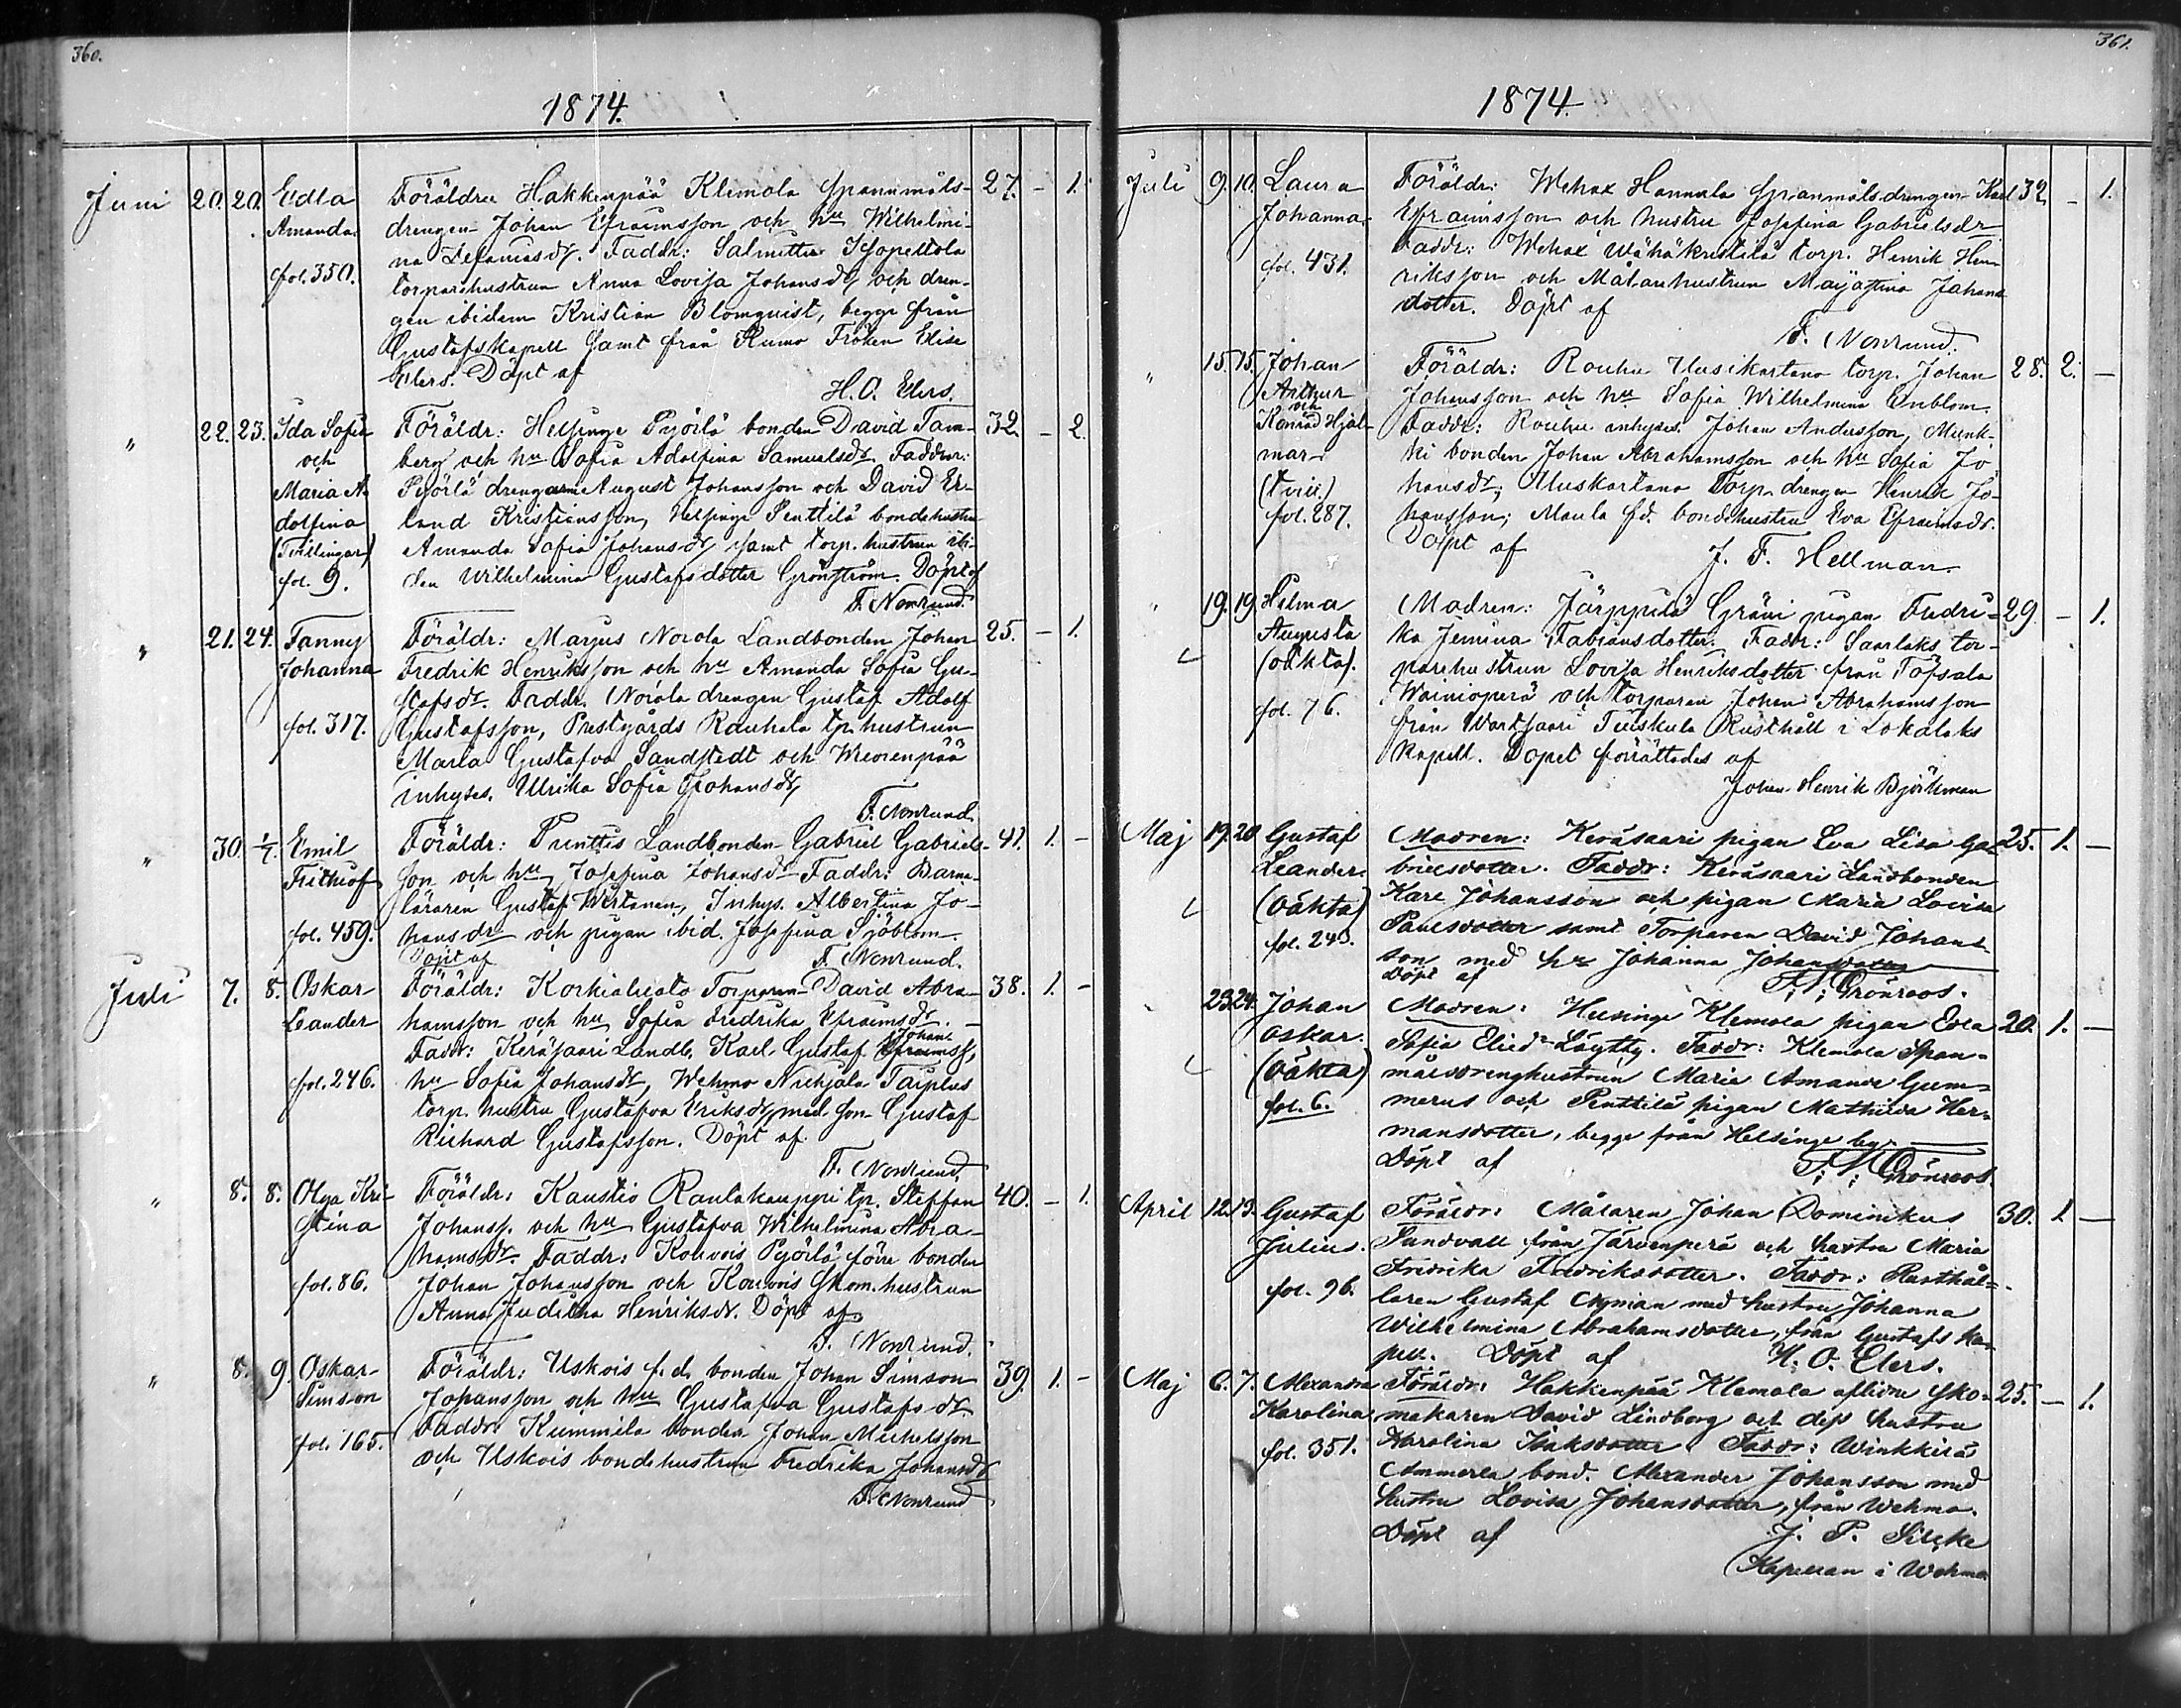 360.
1874.
Juni 20. 20. Edla Amanda. fol. 350.
Föräldrar Hakkenpää Klemola Spanmåls- 27. - 1.
drengen Johan Efraimsson och hu Wilhelmi-
na Zefaniasdr. Faddr: Salmittu Isopeltola
torparehustrun Anna Lovisa Johansdr och dren-
gen ibidem Kristian Blomquist, begge från
Gustafs Kapell samt från Kumo Fröken Elise
Elers. Döpt af
H. O. Elers.
" 22. 23. Ida Sofia och Maria Adolfina (Tvillingar) fol. 9.
Föräldr: Helsinge Pyörlä bonden David Tam- 32. - 2.
berg och hu Sofia Adolfina Samuelsdr Faddrar:
Pyörlä drengarne August Johansson och David Er-
land Kristiansson, Helsinge Penttilä bondehustru
Amanda Sofia Johansdr, samt torp. hustrun ibi-
dem Wilhelmina Gustafsdotter Grönström. Döpt af
F. Nonrund.
" 21. 24. Fanny Johanna fol. 317.
Föräldr: Marjus Norola Landbonden Johan 25. - 1.
Fredrik Henriksson och hu Amanda Sofia Gu-
stafsdr. Faddr. Norola drengen Gustaf Adolf
Gustafsson, Prestgårds Rauhala tp. hustrun
Maria Gustafva Sandstedt och
inhyses. Ulrika Sofia Johansdr,
F. Nonrund.
" 30. 1/7. Emil Frithiof fol. 459.
Föräldr: Punttis Landbonden Gabriel Gabriels- 41. 1. -
son och hu Josefina Johansdr Faddr: Barna-
läraren Gustaf Wirtanen, Inhys. Albertina Jo-
hansdr och pigan ibid. Josefina Sjöblom.
Döpt af F. Nonrund.
Juli 7. 8. Oskar Leander fol. 246.
Föräldr: Korkiakoto Torparen David Abra- 38. 1. -
hamsson och hu Sofia Fredrika Efraimsdr. -
Johans
Faddr: Keräsaari Landb. Karl Gustaf Efraimss,
hu Sofia Johansdr, Wehmo Nuhjala Tarplus
torp. hustru Gustafva Eriksdr, med son Gustaf
Richard Gustafsson. Döpt af
F. Nonrund.
" 8. 8. Olga Kristina fol. 86.
Föräldr: Kaustio Rautakauppi tp. Steffan 40. - 1.
Johanss. och hu Gustafva Wilhelmina Abra-
hamsdr. Faddr: Kouvois Pyörlä förre bonden
Johan Johansson och Kouvois Skom. hustrun
Anna Juditha Henriksdr. Döpt af
F. Nonrund.
" 8. 9. Oskar Simson fol. 165.
Föräldr: Uskois f.d. bonden Johan Simson 39. 1. -
Johansson och hu Gustafva Gustafsdr.
Faddr: Kummila bonden Johan Michelsson
och Uskois bondehustrun Fredrika Johansdr
F. Nonrund
361.
1874.
Juli 9. 10. Laura Johanna. fol. 431.
Föräldr: Wehax Hannula Spanmålsdrengen Karl 32 - 1.
Efraimsson och hustru Josefina Gabrielsdr
Faddr: Wehax Wähäkustila torp. Henrik Hen-
riksson och Målarehustrun Majastina Johans-
dotter. Döpt af
F. Nonrund.
" 15. 15. Johan Arthur och Konrad Hjalmar (tvill.) fol. 287.
Föräldr: Rouhu Uusikartano torp. Johan 28. 2. -
Johansson och hu Sofia Wilhelmina Enblom.
Faddr: Rouhu inhyses Johan Andersson, Munk-
ki bonden Johan Abrahamsson och hu Sofia Jo-
hansdr, Uuskartano Torp. drengen Henrik Jo-
hansson; Maula fd. bondehustru Eva Efraimsdr.
Döpt af
J. F. Hellman.
" 19. 19. Helma Augusta (oäkta). fol. 76.
Modren: Järppilä Gräni pigan Fredri- 29. - 1.
ka Jemina Fabiansdotter. Faddr: Saarlaks tor-
parehustrun Lovisa Henriksdotter från Töfsala
Wainioperä och torparen Johan Abrahamsson
från Wartsaari Tuiskula Rusthåll i Lokalaks
Kapell. Dopet förrättades af
Johan Henrik Björkman
Maj 19. 20 Gustaf Leander. (Oäkta) fol. 243.
Modren: Keräsaari pigan Eva Lisa Ga- 25. 1. -
brielsdotter. Faddr: Keräsaari Landbonden
Karl Johansson och pigan Maria Lovisa
Paulsdotter samt Torparen David Johans-
son med hu Johanna Johansdotter
Döpt af
F. N. Grönroos.
23. 24. Johan Oskar. (Oäkta) fol. 6.
Modren: Helsinge Klemola pigan Edla 20. 1. -
Sofia Eliedr Löytty. Faddr: Klemola Span-
målsdrenghustrun Maria Amanda Gum-
merus och Penttilä pigan Mathilda Her-
mansdotter, begge från Helsinge by.
Döpt af
F. N. Grönroos.
April 12. 13. Gustaf Julius. fol. 96.
Föräldr: Målaren Johan Dominikus 30. 1 -
Sundvall från Järvenperä och hustru Maria
Fredrika Fredriksdotter. Faddr: Rusthål-
laren Gustaf Nyman med hustru Johanna
Wilhelmina Abrahamsdotter, från Gustafs Ka-
pell. Döpt af H. O. Elers.
Maj 6. 7. Alexandra Karolina fol. 351.
Föräldr: Hakkenpää Klemola aflidne Sko- 25. - 1.
makaren David Lindborg och dess hustru
Karolina Isaksdotter. Faddr: Winkkilä
Ammerla bond. Alexander Johansson med
hustru Lovisa Johansdotter, från Wehmo.
Döpt af J. P. Silcke
Kapellan i Wehmo